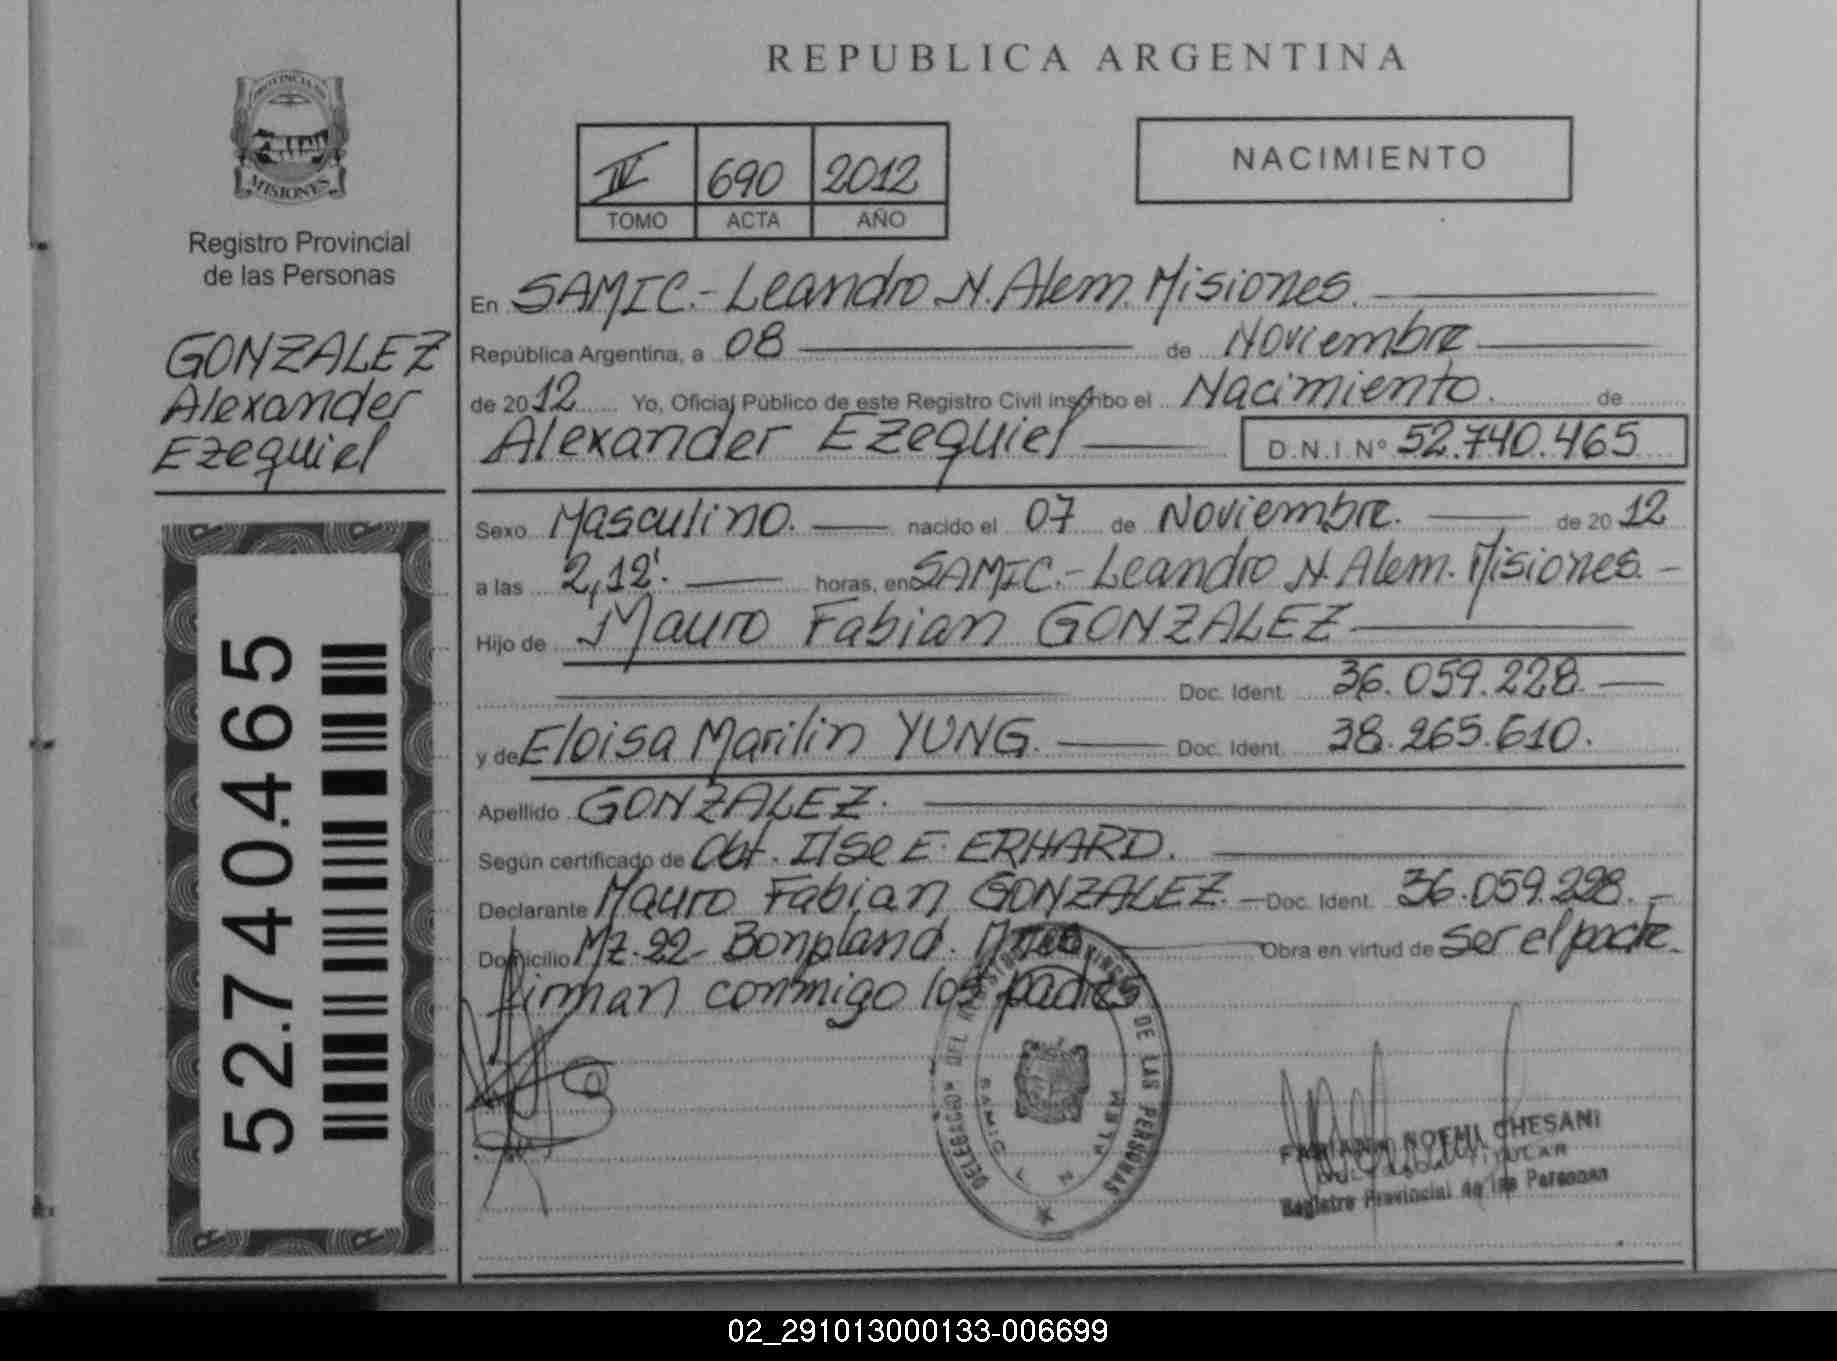 REPUBLICA ARGENTINA
PROVINCIA DE
MISIONES
Registro Provincial
de las Personas
GONZALEZ
Alexander
Ezequiel
52.740.465
IV 690 2012
TOMO ACTA AÑO
NACIMIENTO
En SAMIC.- Leandro N. Alem. Misiones.
República Argentina, a 08 de Noviembre
de 2012 Yo, Oficial Público de este Registro Civil inscribo el Nacimiento. de
Alexander Ezequiel D.N.I. Nº 52.740.465
Sexo Masculino. nacido el 07 de Noviembre. de 2012
a las 2,12'. horas, en SAMIC.- Leandro N. Alem. Misiones.-
Hijo de Mauro Fabian GONZALEZ
Doc. Ident. 36.059.228.
y de Eloisa Marilin YUNG. Doc. Ident. 38.265.610.
Apellido GONZALEZ.
Según certificado de Obt. Ilse E. ERHARD.
Declarante Mauro Fabian GONZALEZ.- Doc. Ident. 36.059.228.-
Domicilio Mz. 22- Bonpland. Obra en virtud de ser el padre.
firman conmigo los padres
DE LAS PERSONAS
SAMIC L N ALEM
NOEMI CHESANI
TITULAR
Registro Provincial de las Personas
02_291013000133-006699